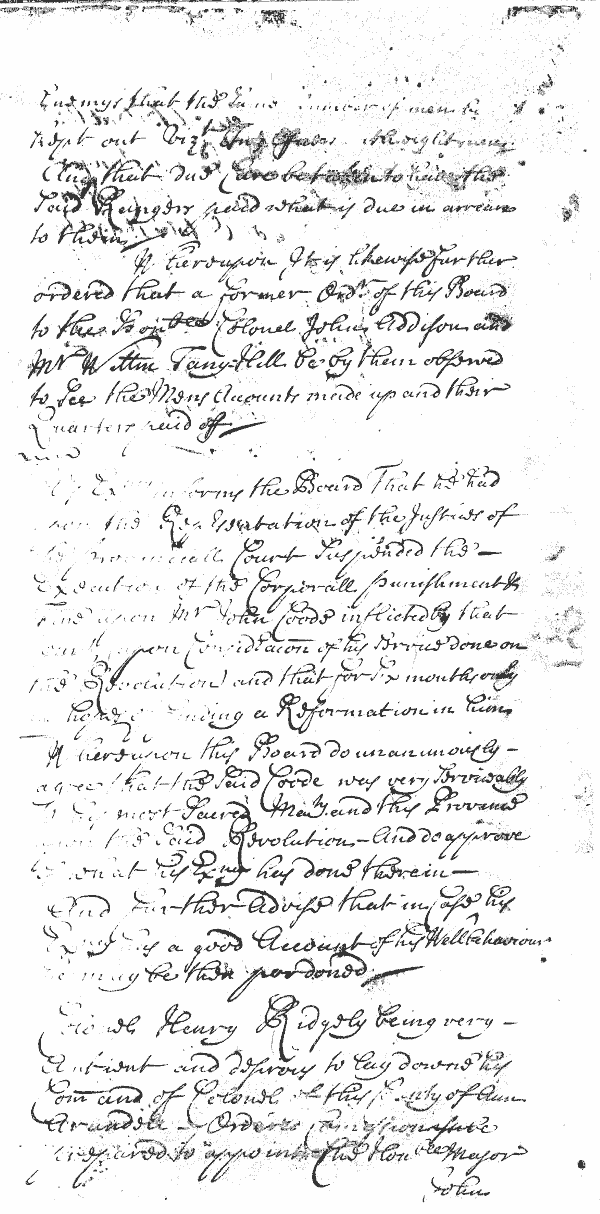 Enemys that the same number of men be
kept out Vizt
And that due Care be taken to have the
said Rangers paid what is due in arrears
to them
Whereupon It is likewise further
ordered that a former Ordr of this Board
to the Honble Colonel John Addison and
Mr Willm Taney-Hill be by them observed
to See the Mens Accounts made up and their
Quarters paid off
informs the Board That he had
upon the Representation of the Justices of
the provinciall Court Suspended the
Execution of the Corporall punishment &
Fine upon Mr John Coode inflicted by that
upon Consideracon of his Service done on
the Revolution and that for Six months only
in hopes of finding a Reformation in him
Whereupon this Board do unanimously
agree that the said Coode was very Serviceable
to his most Sacred Maty and this Province
upon the said Revolution And do approve
of what his Exncy has done therein
And further Advise that in Case his
Exncy has a good Account of his Well behaviour
he may be then pardoned
Colonel Henry Ridgely being very
Antient and desirous to lay downe his
Comand of Colonel of this County of Ann
Arundell Ordered Comission
prepared to appoint the Honble Major
John